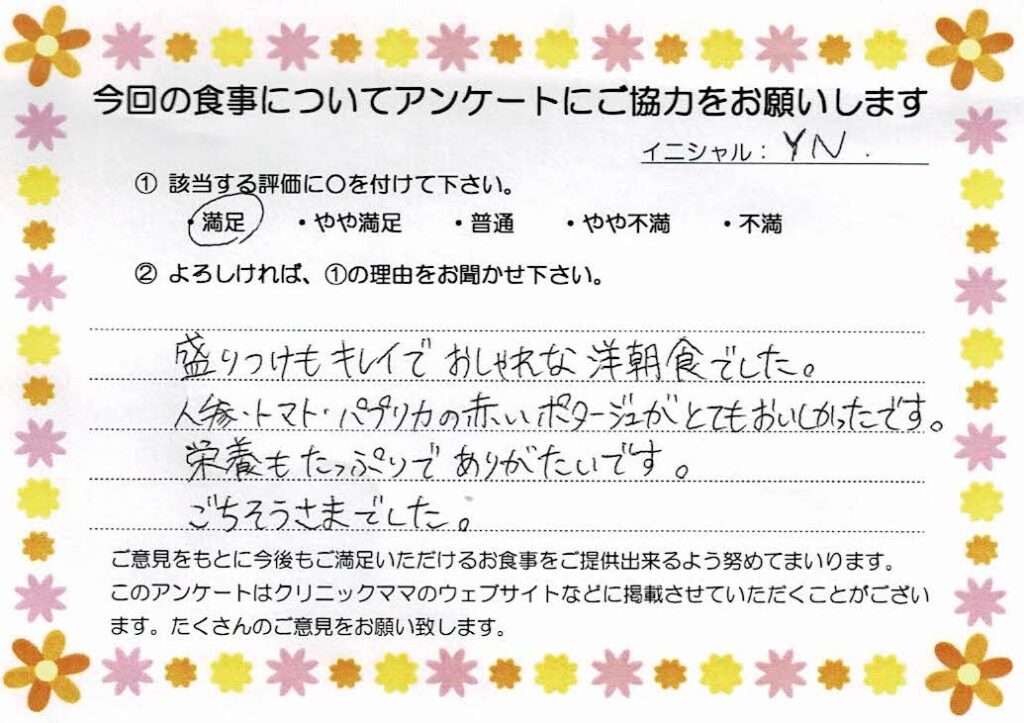 今回の食事についてアンケートにご協力をお願いします
イニシャル：YN.
① 該当する評価に〇を付けて下さい。
・満足 ・やや満足 ・普通 ・やや不満 ・不満
② よろしければ、①の理由をお聞かせ下さい。
盛りつけもキレイでおしゃれな洋朝食でした。
人参・トマト・パプリカの赤いポタージュがとてもおいしかったです。
栄養もたっぷりでありがたいです。
ごちそうさまでした。
ご意見をもとに今後もご満足いただけるお食事をご提供出来るよう努めてまいります。
このアンケートはクリニックママのウェブサイトなどに掲載させていただくことがござい
ます。たくさんのご意見をお願い致します。